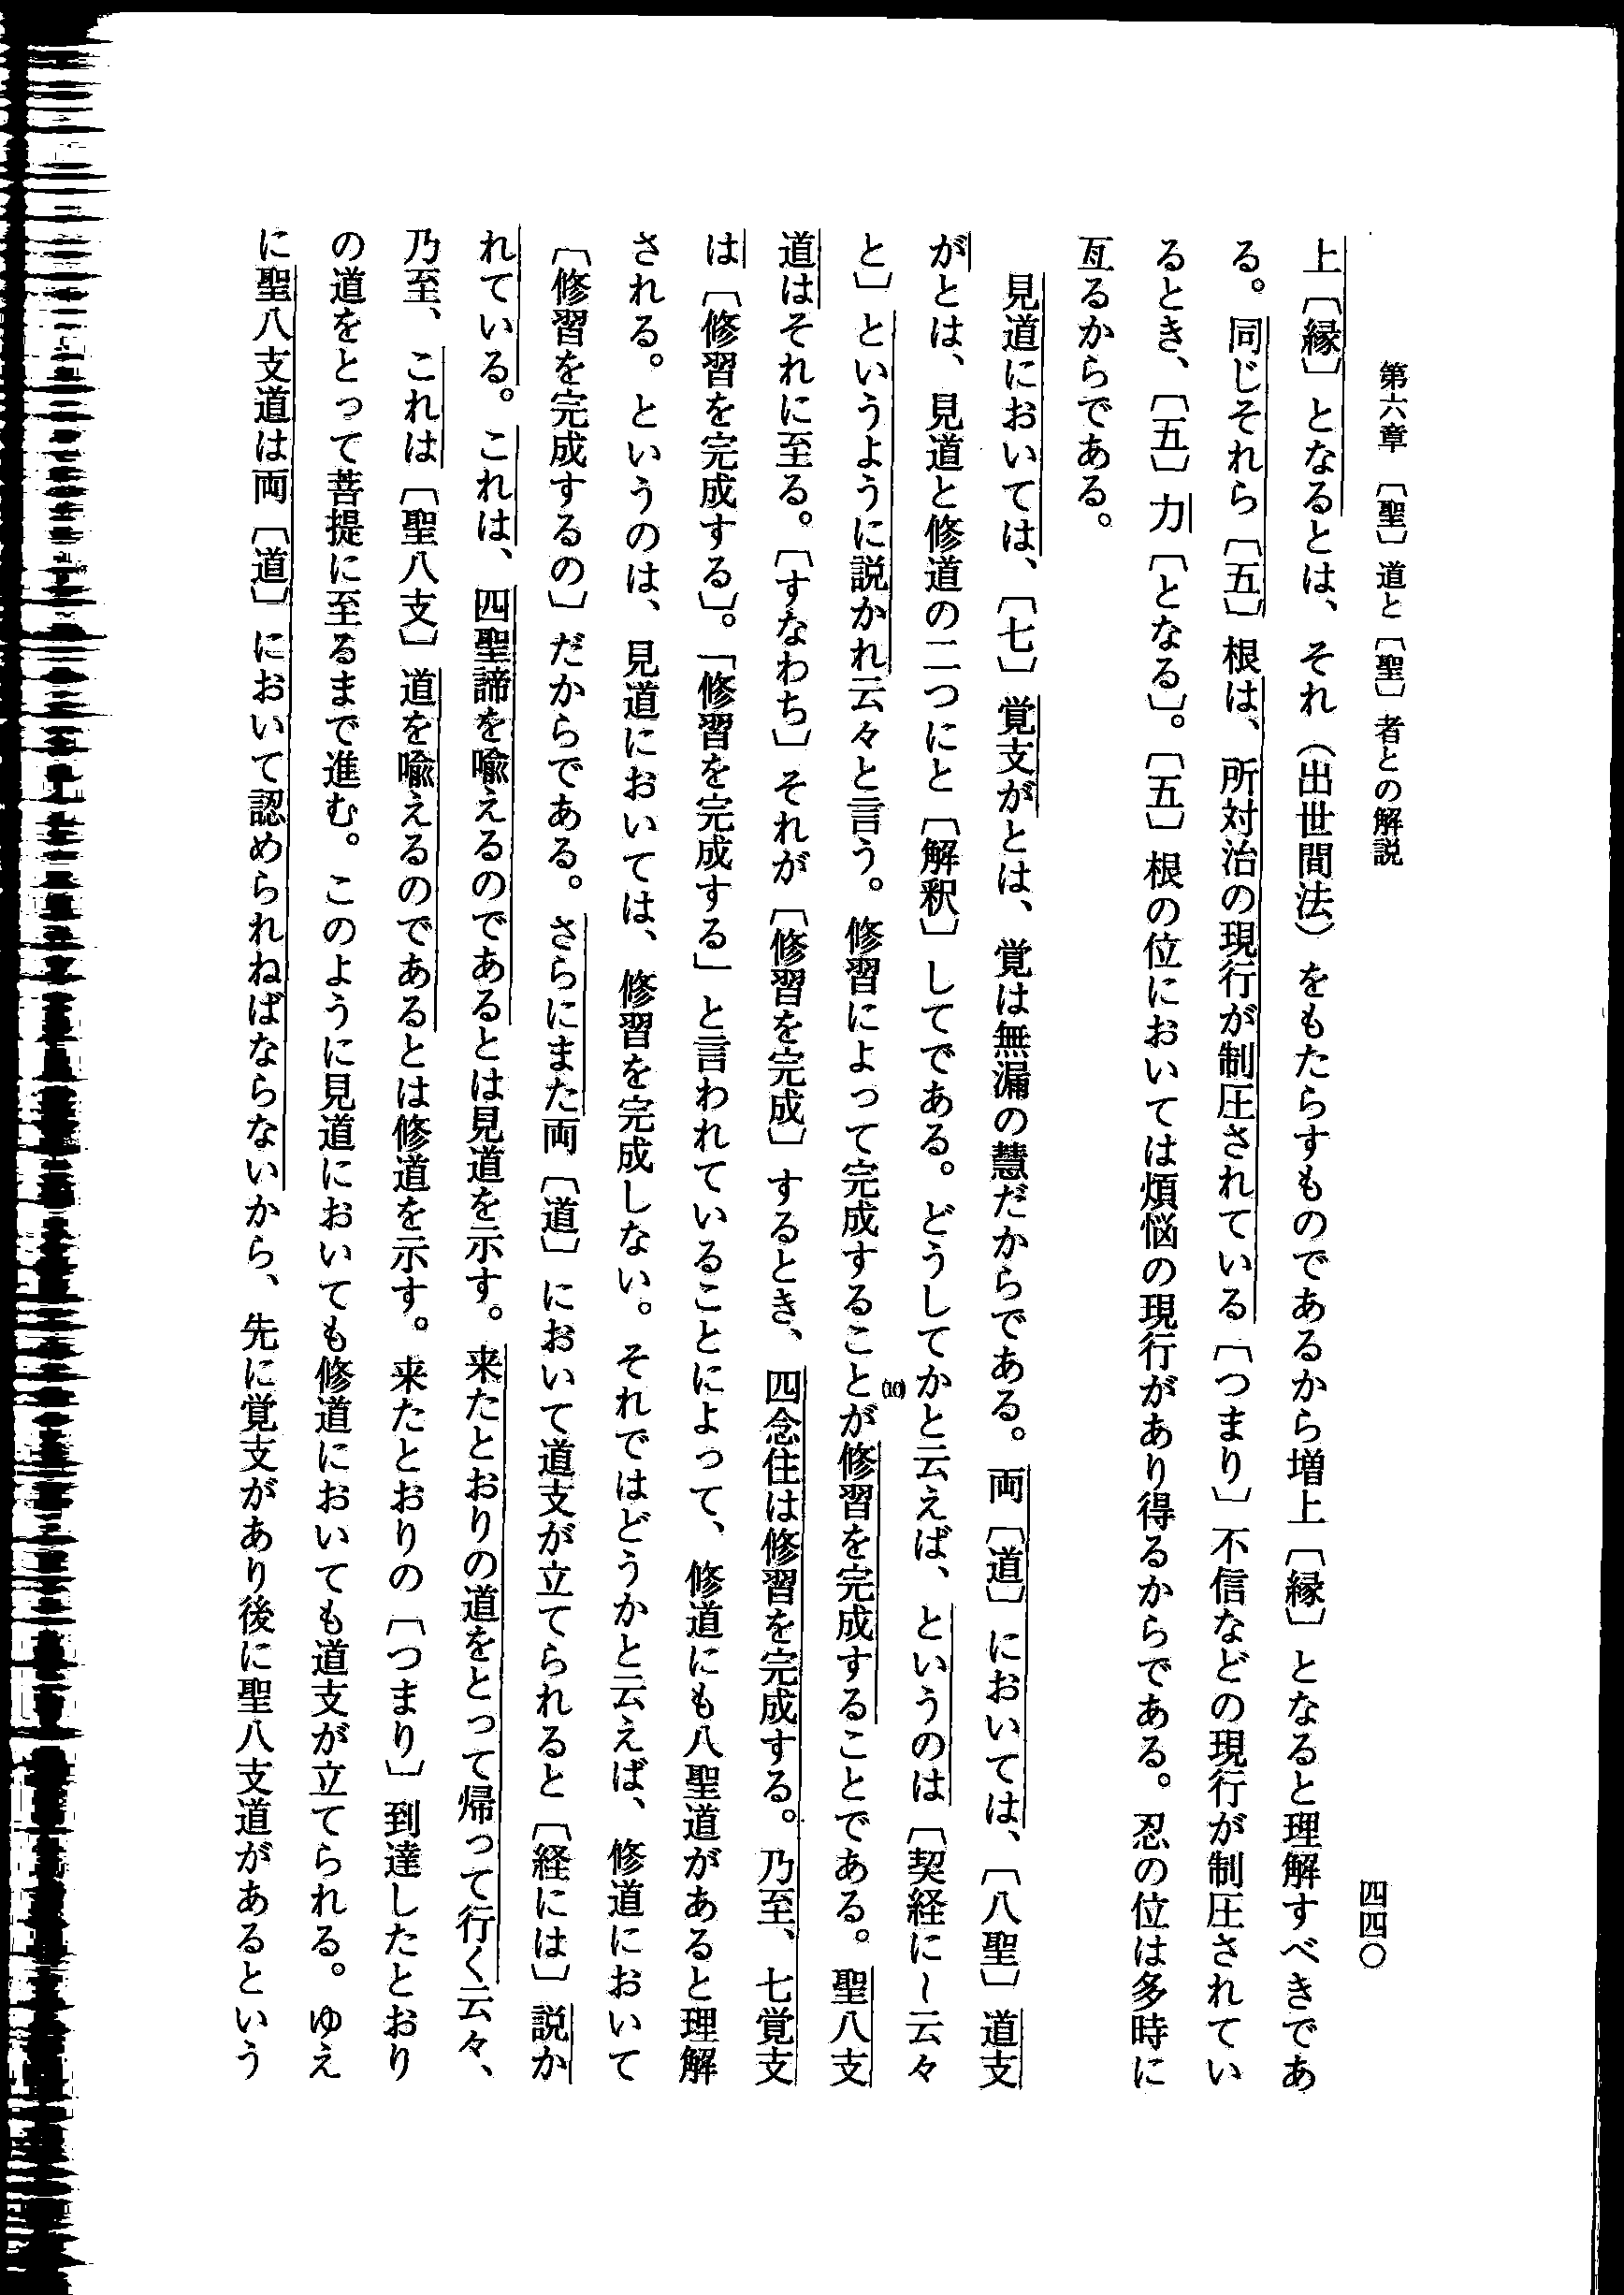 第六章　〔聖〕道と〔聖〕者との解説
四四〇
上〔縁〕となるとは、それ（出世間法）をもたらすものであるから増上〔縁〕となると理解すべきであ
る。同じそれら〔五〕根は、所対治の現行が制圧されている〔つまり〕不信などの現行が制圧されてい
るとき、〔五〕力〔となる〕。〔五〕根の位においては煩悩の現行があり得るからである。忍の位は多時に
亙るからである。
見道においては、〔七〕覚支がとは、覚は無漏の慧だからである。両〔道〕においては、〔八聖〕道支
がとは、見道と修道の二つにと〔解釈〕してである。どうしてかと云えば、というのは〔契経に～云々
と〕というように説かれ云々と言う。修習によって完成することが修習を完成することである。聖八支
(10)
道はそれに至る。〔すなわち〕それが〔修習を完成〕するとき、四念住は修習を完成する。乃至、七覚支
は〔修習を完成する〕。「修習を完成する」と言われていることによって、修道にも八聖道があると理解
される。というのは、見道においては、修習を完成しない。それではどうかと云えば、修道において
〔修習を完成するの〕だからである。さらにまた両〔道〕において道支が立てられると〔経には〕説か
れている。これは、四聖諦を喩えるのであるとは見道を示す。来たとおりの道をとって帰って行く云々、
乃至、これは〔聖八支〕道を喩えるのであるとは修道を示す。来たとおりの〔つまり〕到達したとおり
の道をとって菩提に至るまで進む。このように見道においても修道においても道支が立てられる。ゆえ
に聖八支道は両〔道〕において認められねばならないから、先に覚支があり後に聖八支道があるという